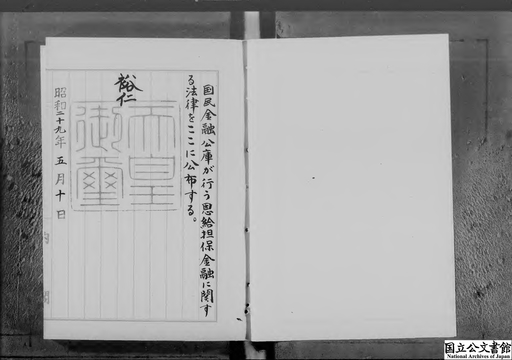 国民金融公庫が行う恩給担保金融に関す
る法律をここに公布する。
裕仁
天皇
御璽
昭和二十九年五月十日
国立公文書館
National Archives of Japan